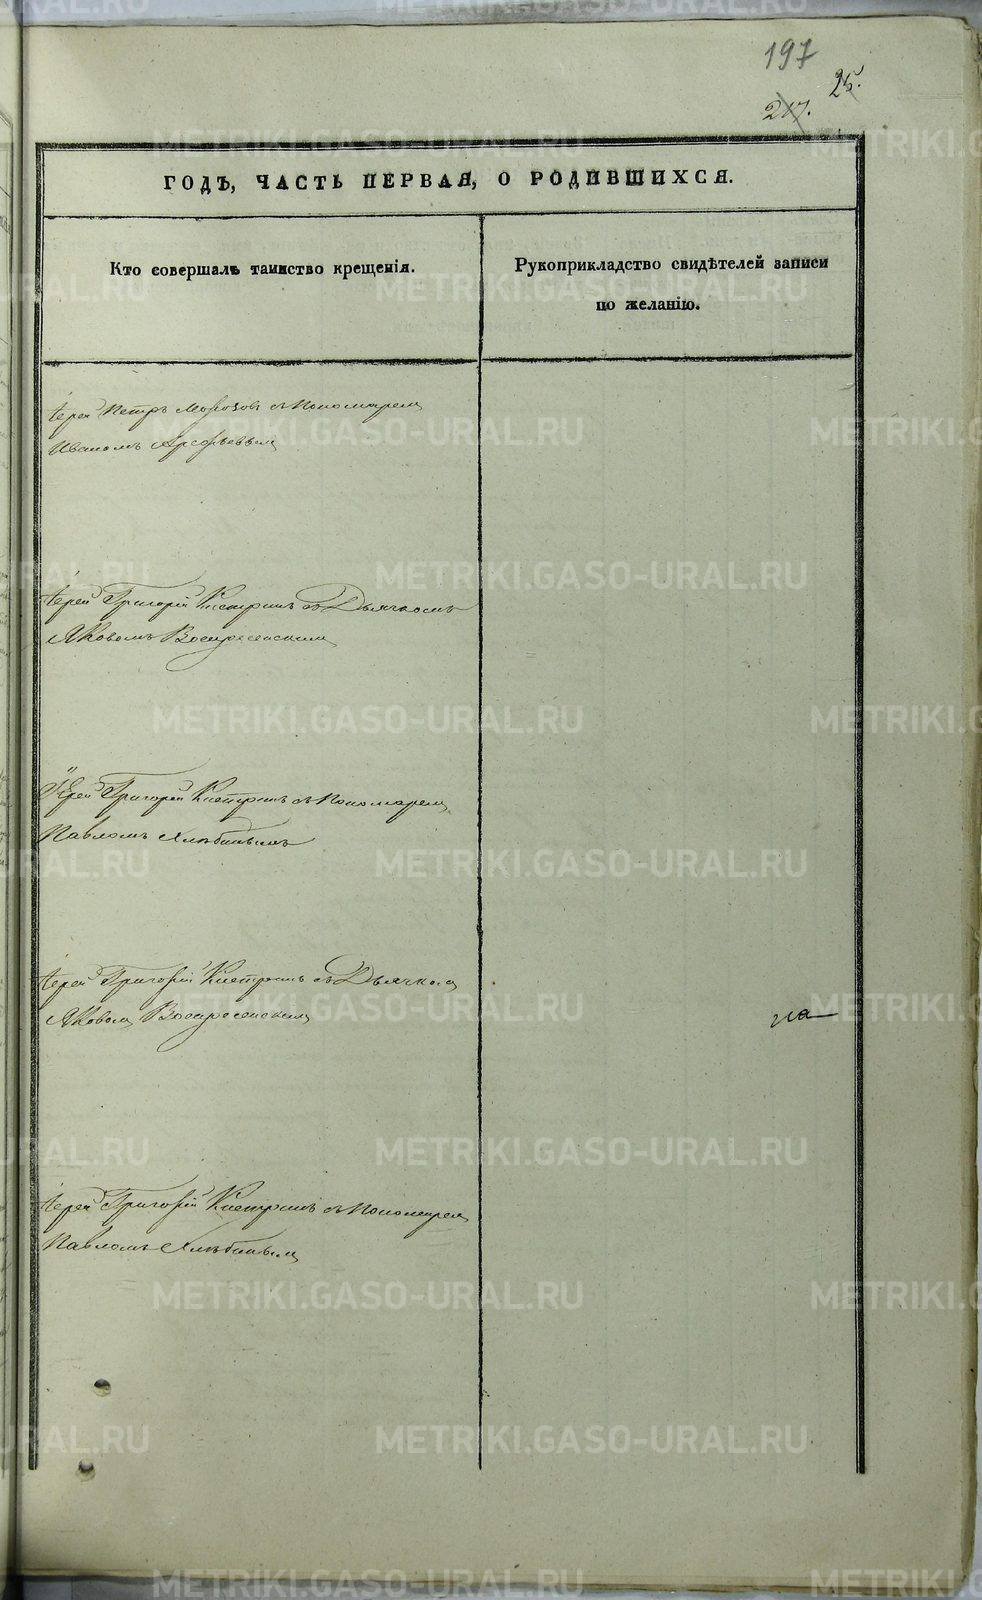 197
25.
217.
ГОДЪ, ЧАСТЬ ПЕРВАЯ, О РОДИВШИХСЯ.
Кто совершалъ таинство крещенія.
Рукоприкладство свидѣтелей записи
по желанію.
Іерей Петръ Морозовъ съ Пономарем
Иваномъ Арефьевым
Іерей Григорій Кистринъ съ Дьячкомъ
Яковомъ Воскресенским
Іерей Григорій Кистринъ съ Пономарем
Павломъ Хлѣбинымъ
Іерей Григорій Кистринъ съ Дьячком
Яковом Воскресенским
на
Іерей Григорій Кистринъ съ Пономарем
Павломъ Хлѣбиным
METRIKI.GASO-URAL.RU